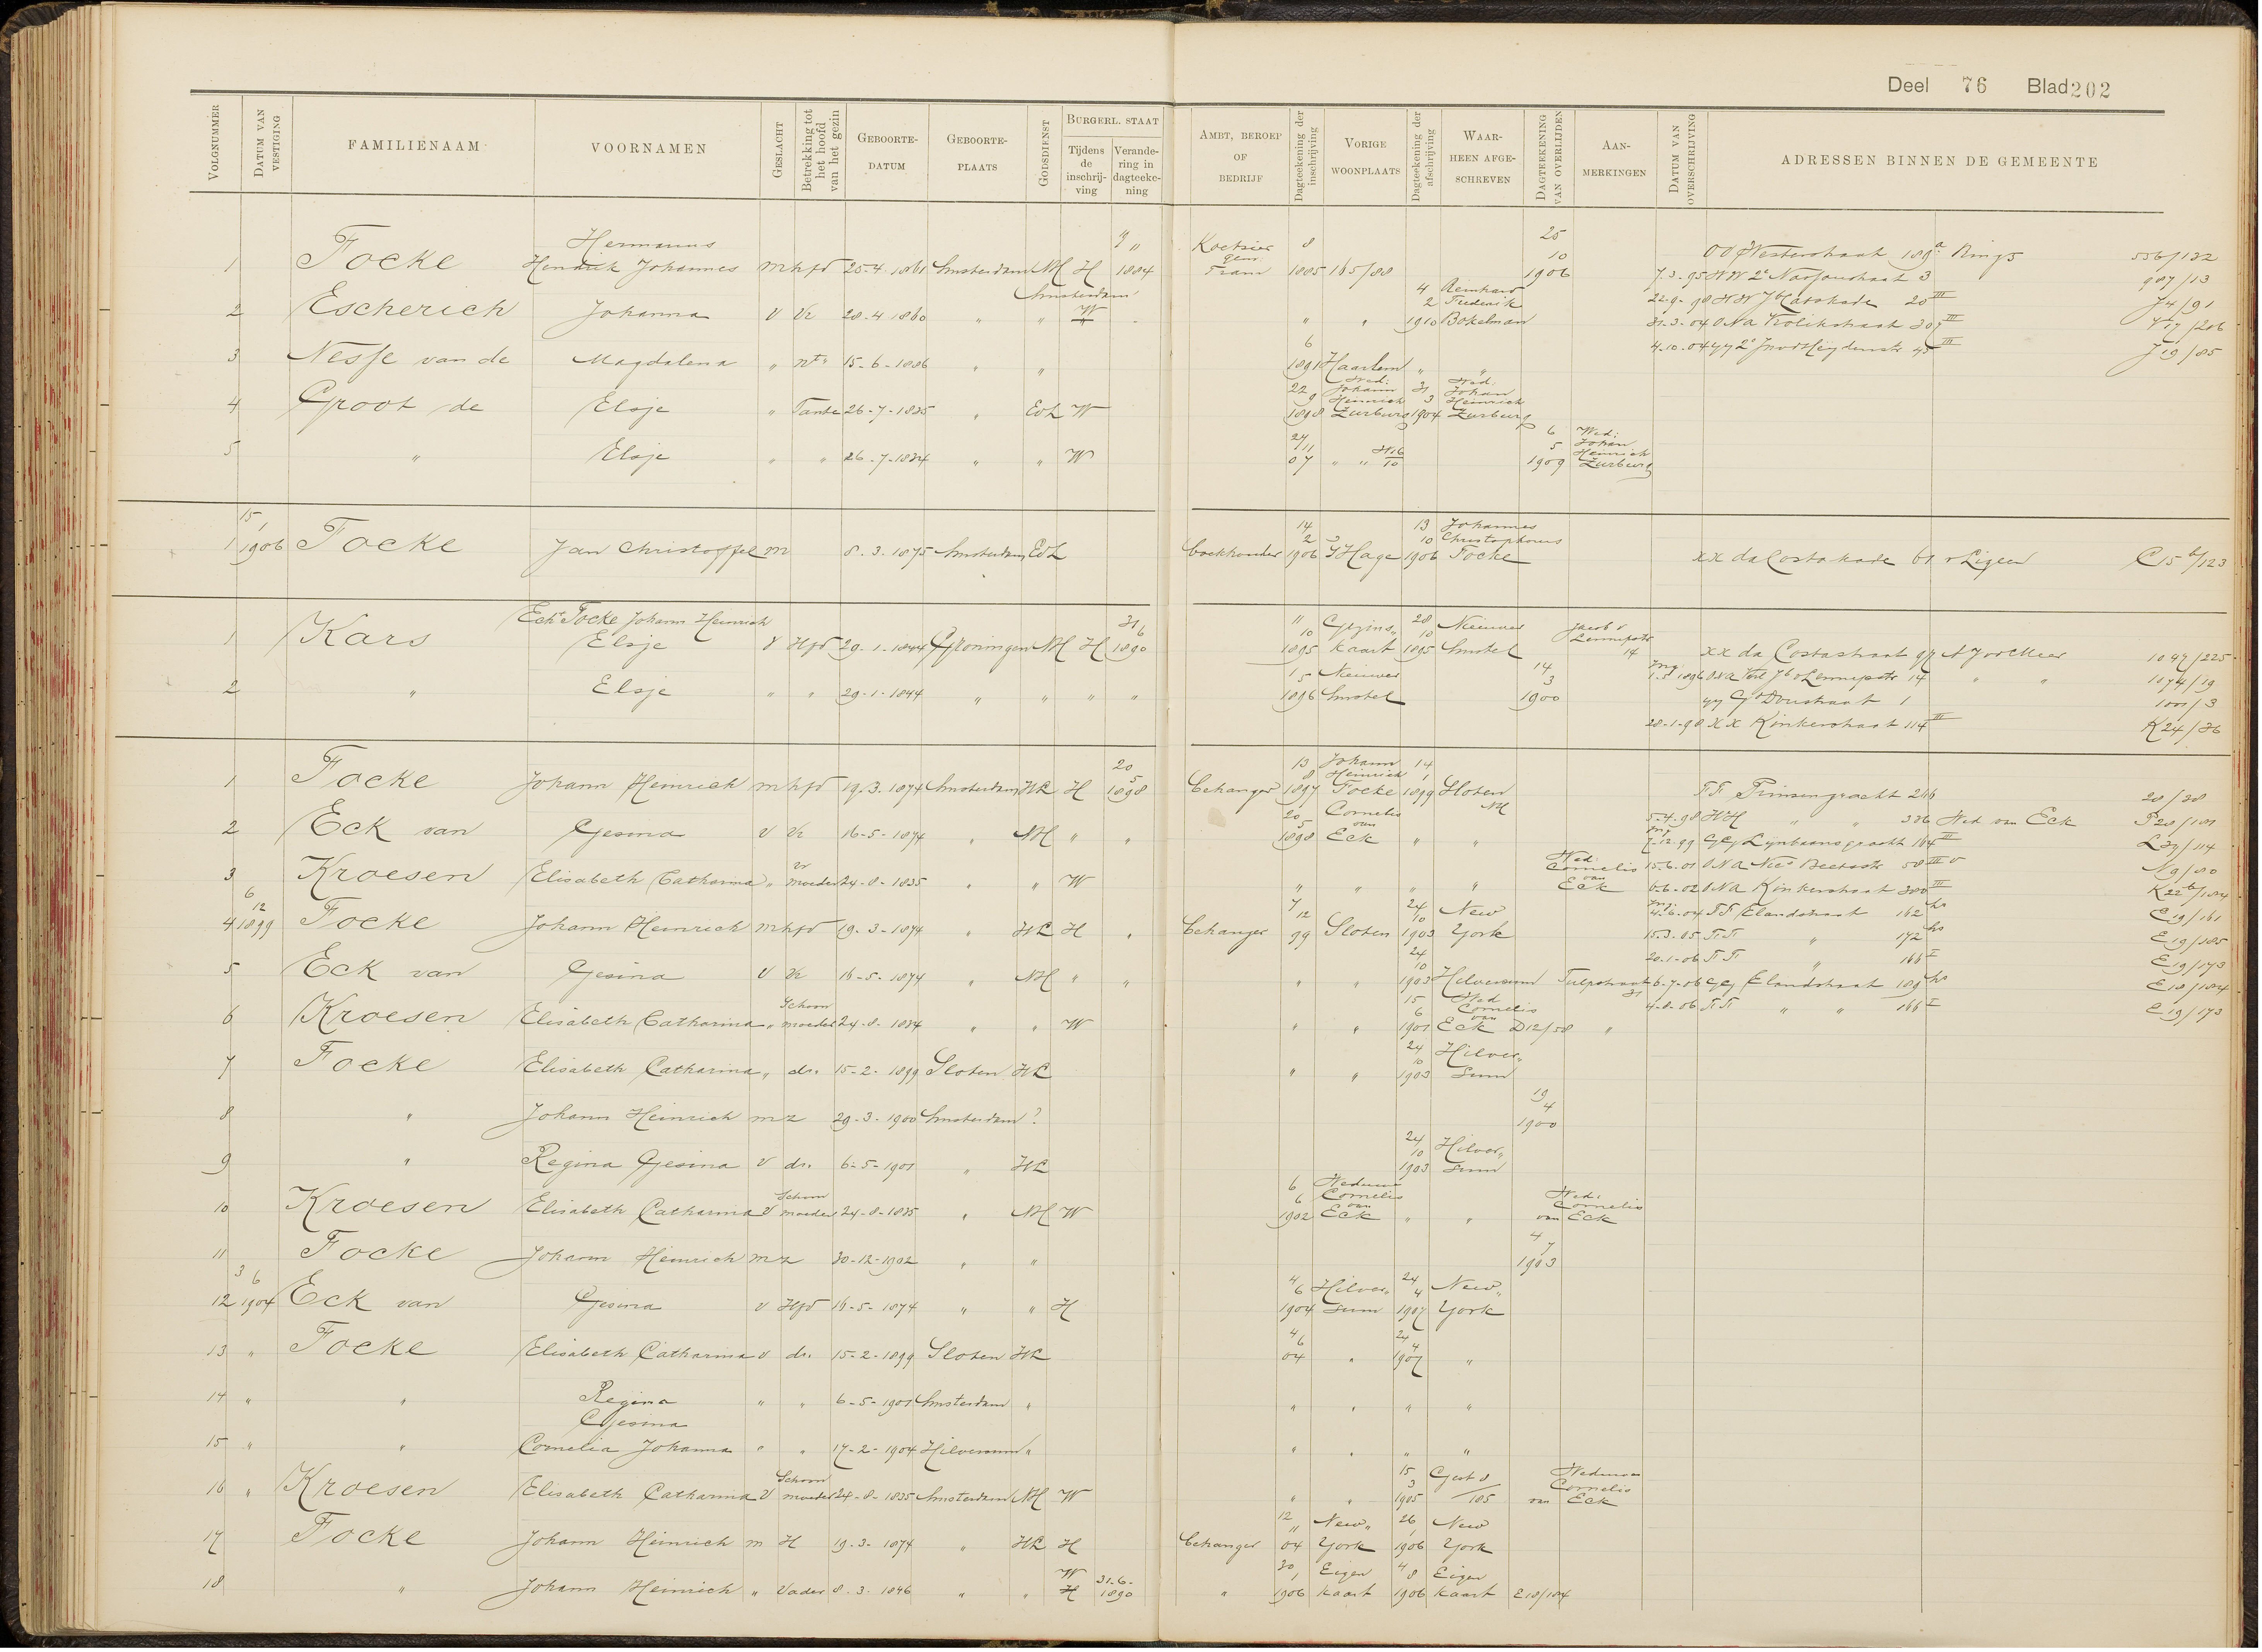 Deel 76 Blad 202
VOLGNUMMER DATUM VAN VESTIGING FAMILIENAAM VOORNAMEN GESLACHT Betrekking tot het hoofd van het gezin GEBOORTE-DATUM GEBOORTE-PLAATS GODSDIENST BURGERL. STAAT Tijdens de inschrijving Verandering in dagteekening AMBT, BEROEP OF BEDRIJF Dagteekening der inschrijving VORIGE WOONPLAATS Dagteekening der afschrijving WAARHEEN AFGESCHREVEN DAGTEEKENING VAN OVERLIJDEN AANMERKINGEN DATUM VAN OVERSCHRIJVING ADRESSEN BINNEN DE GEMEENTE
1 Focke Hermanus Hendrik Johannes m hfd 25-4-1861 Amsterdam NH H 1884 Koetsier Tram 8 1885 165/88 25 10 1906
OO Westerstraat 189a 556/132
7-3-95 WW 2e Nassaustraat 3 987/13
2 Escherich Johanna V Vr 28-4-1860 " " Amsterdam W " " 4 2 1910 Frederik Bokelman
22-9-98 20 III J4/91
31-3-04 ONA Kolikstraat 309 III
4-10-04 YY 45 III J19/85
3 Nesse van de Magdalena " 15-6-1886 " " 6 1891 Haarlem " "
4 Groot de Elsje " Tante 26-7-1835 " EvL W 22 9 1898 Wed: Johann Heinrich Zurburg 31 3 1904 Wed. Johan Heinrich Zurburg
5 " Elsje " " 26-7-1834 " " W 27/11 07 " " 6 5 1909 Wed: Johan Heinrich Zurburg
1 15 1 1906 Focke Jan Christoffel m 8-3-1875 Amsterdam EvL boekhouder 14 2 1906 's Hage 13 10 1906 Johannes Christophorus Focke
XX da Costakade C15 b/123
1 Kars Echt Focke Johann Heinrich Elsje V Hfd 29-1-1844 Groningen NH H 31 6 1890 11 10 1895 Gezinskaart 28 10 1895 Nieuwer Amstel Jacob v Lennepstr 14
XX da Costastraat 97 1047/225
1-5-1896 14 " " 1074/19
2 " Elsje " " 29-1-1844 " " " " 15 1896 Nieuwer Amstel 14 3 1900
YY G Doustraat 1 1001/3
28-1-98 XX Kinkerstraat 114 III K24/36
1 Focke Johann Heinrich m hfd 19-3-1874 Amsterdam HL H 20 5 1898 behanger 13 8 1897 Johann Heinrich Focke 14 1 1899 Sloten NH
TT Prinsengracht 216 20/38
2 Eck van Gesina V Vr 16-5-1874 " NH " " 20 5 1898 Cornelis van Eck " "
5-4-98 HH " " 336 Wed van Eck P28/181
7-12-99 Lijnbaansgracht 164 III L39/114
3 Kroesen Elisabeth Catharina " Vr moeder 24-8-1835 " " W " " " " Wed: Cornelis van Eck
15-6-01 ONA Nic Beetsstr 58 III N9/80
6-6-02 ONA Kinkerstraat 380 III K22b/184
4 6 12 1899 Focke Johann Heinrich m hfd 19-3-1874 " HL H " behanger 7 12 99 Sloten 24 10 1903 New York
4-6-04 TT Elandstraat 162 hs E19/161
15-3-05 TT " 172 hs E19/185
5 Eck van Gesina V Vr 16-5-1874 " NH " " " " 24 10 1903 Hilversum Tulpstraat 31
20-1-06 TT " 166 I E19/173
6-7-06 Elandstraat 189 hs E18/184
6 Kroesen Elisabeth Catharina " Schoonmoeder 24-8-1834 " " W " " 15 6 1901 Wed Cornelis van Eck D12/58 "
4-8-06 TT " " 166 I E19/173
7 Focke Elisabeth Catharina " dr. 15-2-1899 Sloten HL " " 24 10 1903 Hilversum
8 " Johann Heinrich m z 29-3-1900 Amsterdam ? 19 4 1900
9 " Regina Gesina V dr. 6-5-1901 " HL 24 10 1903 Hilversum
10 Kroesen Elisabeth Catharina V Schoonmoeder 24-8-1835 " NH W 6 6 1902 Weduwe Cornelis van Eck " " Wed: Cornelis van Eck
11 Focke Johann Heinrich m z 30-12-1902 " " 4 7 1903
12 3 6 1904 Eck van Gesina V Hfd 16-5-1874 " " H 4 6 1904 Hilversum 24 4 1907 New York
13 " Focke Elisabeth Catharina V dr. 15-2-1899 Sloten HL 4 6 04 " 24 4 1907 "
14 " " Regina Gesina " " 6-5-1901 Amsterdam " " " " "
15 " " Cornelia Johanna " " 17-2-1904 Hilversum " " " " "
16 " Kroesen Elisabeth Catharina V Schoonmoeder 24-8-1835 Amsterdam NH W " " 15 3 1905 Gest 8/185 Weduwe Cornelis van Eck
17 Focke Johann Heinrich m H 19-3-1874 " HL H behanger 12 11 04 New York 26 1 1906 New York
18 " Johann Heinrich " Vader 8-3-1846 " " W H 31-6-1890 " 30 1 1906 Eigen kaart 4 8 1906 Eigen kaart E18/184